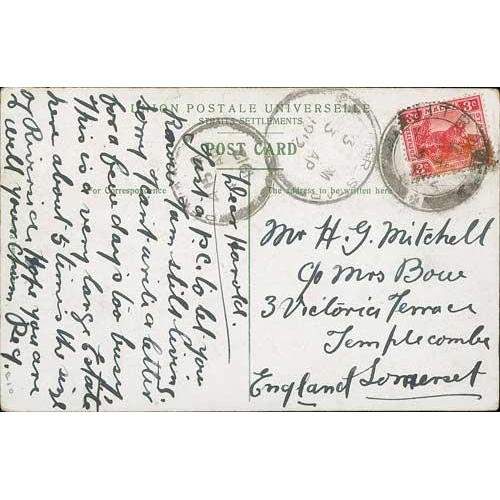 UNION POSTALE UNIVERSELLE
STRAITS SETTLEMENTS
POST CARD
For Correspondence
The address to be written here
3c
Dear Harold.
Just a p.c. to let you
know I am still living.
Sorry I can't write a letter
for a few days too busy.
This is a very large Estate
here about 5 times the size
of Hope you are
well your Chum
Reg.
Mr H. G. Mitchell
c/o Mrs Bowe
3 Victoria Terrace
Templecombe
Somerset
England